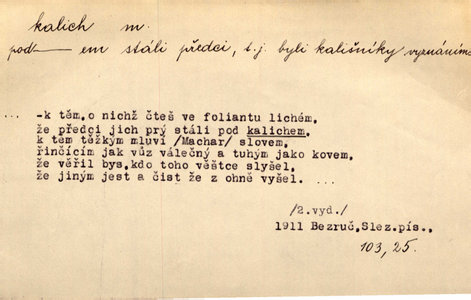 kalich m.
pod — em stáli předci, t.j. byli kališníky vyznáním
... -k těm,o nichž čteš ve foliantu lichém,
že předci jich prý stáli pod kalichem,
k tem těžkým mluví /Machar/ slovem,
řinčícím jak vůz válečný a tuhým jako kovem,
že věřil bys,kdo toho věštce slyšel,
že jiným jest a čist že z ohně vyšel. ...
/2.vyd./
1911 Bezruč,Slez.pís.,
103,25.